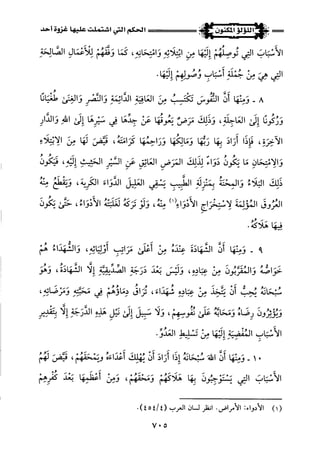 اللؤلؤ المكنون الحكم التي اشتملت عليها غزوة أحد
الأَسْبَابَ التِي تُوصِلُهُمْ إِلَيْهَا مِنِ ابْتِلَائِهِ وَامْتِحَانِهِ، كَمَا وَفَّقَهُمْ لِلْأَعْمَالِ الصَّالِحَةِ
التِي هِيَ مِنْ جُمْلَةِ أَسْبَابِ وُصُولِهِمْ إِلَيْهَا.
٨ - وَمِنْهَا أَنَّ النُّفُوسَ تَكْتَسِبُ مِنَ العَافِيَةِ الدَّائِمَةِ وَالنَّصْرِ وَالغِنَى طُغْيَانًا
وَرُكُونًا إِلَى العَاجِلَةِ، وَذَلِكَ مَرَضٌ يَعُوقُهَا عَنْ جِدِّهَا فِي سَيْرِهَا إِلَى اللهِ وَالدَّارِ
الآخِرَةِ، فَإِذَا أَرَادَ بِهَا رَبُّهَا وَمَالِكُهَا وَرَاحِمُهَا كَرَامَتَهُ، قَيَّضَ لَهَا مِنَ الِابْتِلَاءِ
وَالِامْتِحَانِ مَا يَكُونُ دَوَاءً لِذَلِكَ المَرَضِ العَائِقِ عَنِ السَّيْرِ الحَثِيثِ إِلَيْهِ، فَيَكُونُ
ذَلِكَ البَلَاءُ وَالمِحْنَةُ بِمَنْزِلَةِ الطَّبِيبِ يَسْقِي العَلِيلَ الدَّوَاءَ الكَرِيهَ، وَيَقْطَعُ مِنْهُ
العُرُوقَ المُؤْلِمَةَ لِاسْتِخْرَاجِ الأَدْوَاءِ(١) مِنْهُ، وَلَوْ تَرَكَهُ لَغَلَبَتْهُ الأَدْوَاءُ، حَتَّى يَكُونَ
فِيهَا هَلَاكُهُ.
٩ - وَمِنْهَا أَنَّ الشَّهَادَةَ عِنْدَهُ مِنْ أَعْلَى مَرَاتِبِ أَوْلِيَائِهِ، وَالشُّهَدَاءُ هُمْ
خَوَاصُّهُ وَالمُقَرَّبُونَ مِنْ عِبَادِهِ، وَلَيْسَ بَعْدَ دَرَجَةِ الصِّدِّيقِيَّةِ إِلَّا الشَّهَادَةُ، وَهُوَ
سُبْحَانَهُ يُحِبُّ أَنْ يَتَّخِذَ مِنْ عِبَادِهِ شُهَدَاءَ، تُرَاقُ دِمَاؤُهُمْ فِي مَحَبَّتِهِ وَمَرْضَاتِهِ،
وَيُؤْثِرُونَ رِضَاهُ وَمَحَابَّهُ عَلَى نُفُوسِهِمْ، وَلَا سَبِيلَ إِلَى نَيْلِ هَذِهِ الدَّرَجَةِ إِلَّا بِتَقْدِيرِ
الأَسْبَابِ المُفْضِيَةِ إِلَيْهَا مِنْ تَسْلِيطِ العَدُوِّ.
١٠ - وَمِنْهَا أَنَّ اللهَ سُبْحَانَهُ إِذَا أَرَادَ أَنْ يُهْلِكَ أَعْدَاءَهُ وَيَمْحَقَهُمْ، قَيَّضَ لَهُمُ
الأَسْبَابَ التِي يَسْتَوْجِبُونَ بِهَا هَلَاكَهُمْ وَمَحْقَهُمْ، وَمِنْ أَعْظَمِهَا بَعْدَ كُفْرِهِمْ
(١) الأدواء: الأمراض. انظر لسان العرب (٤/٤٥٤).
٧٠٥